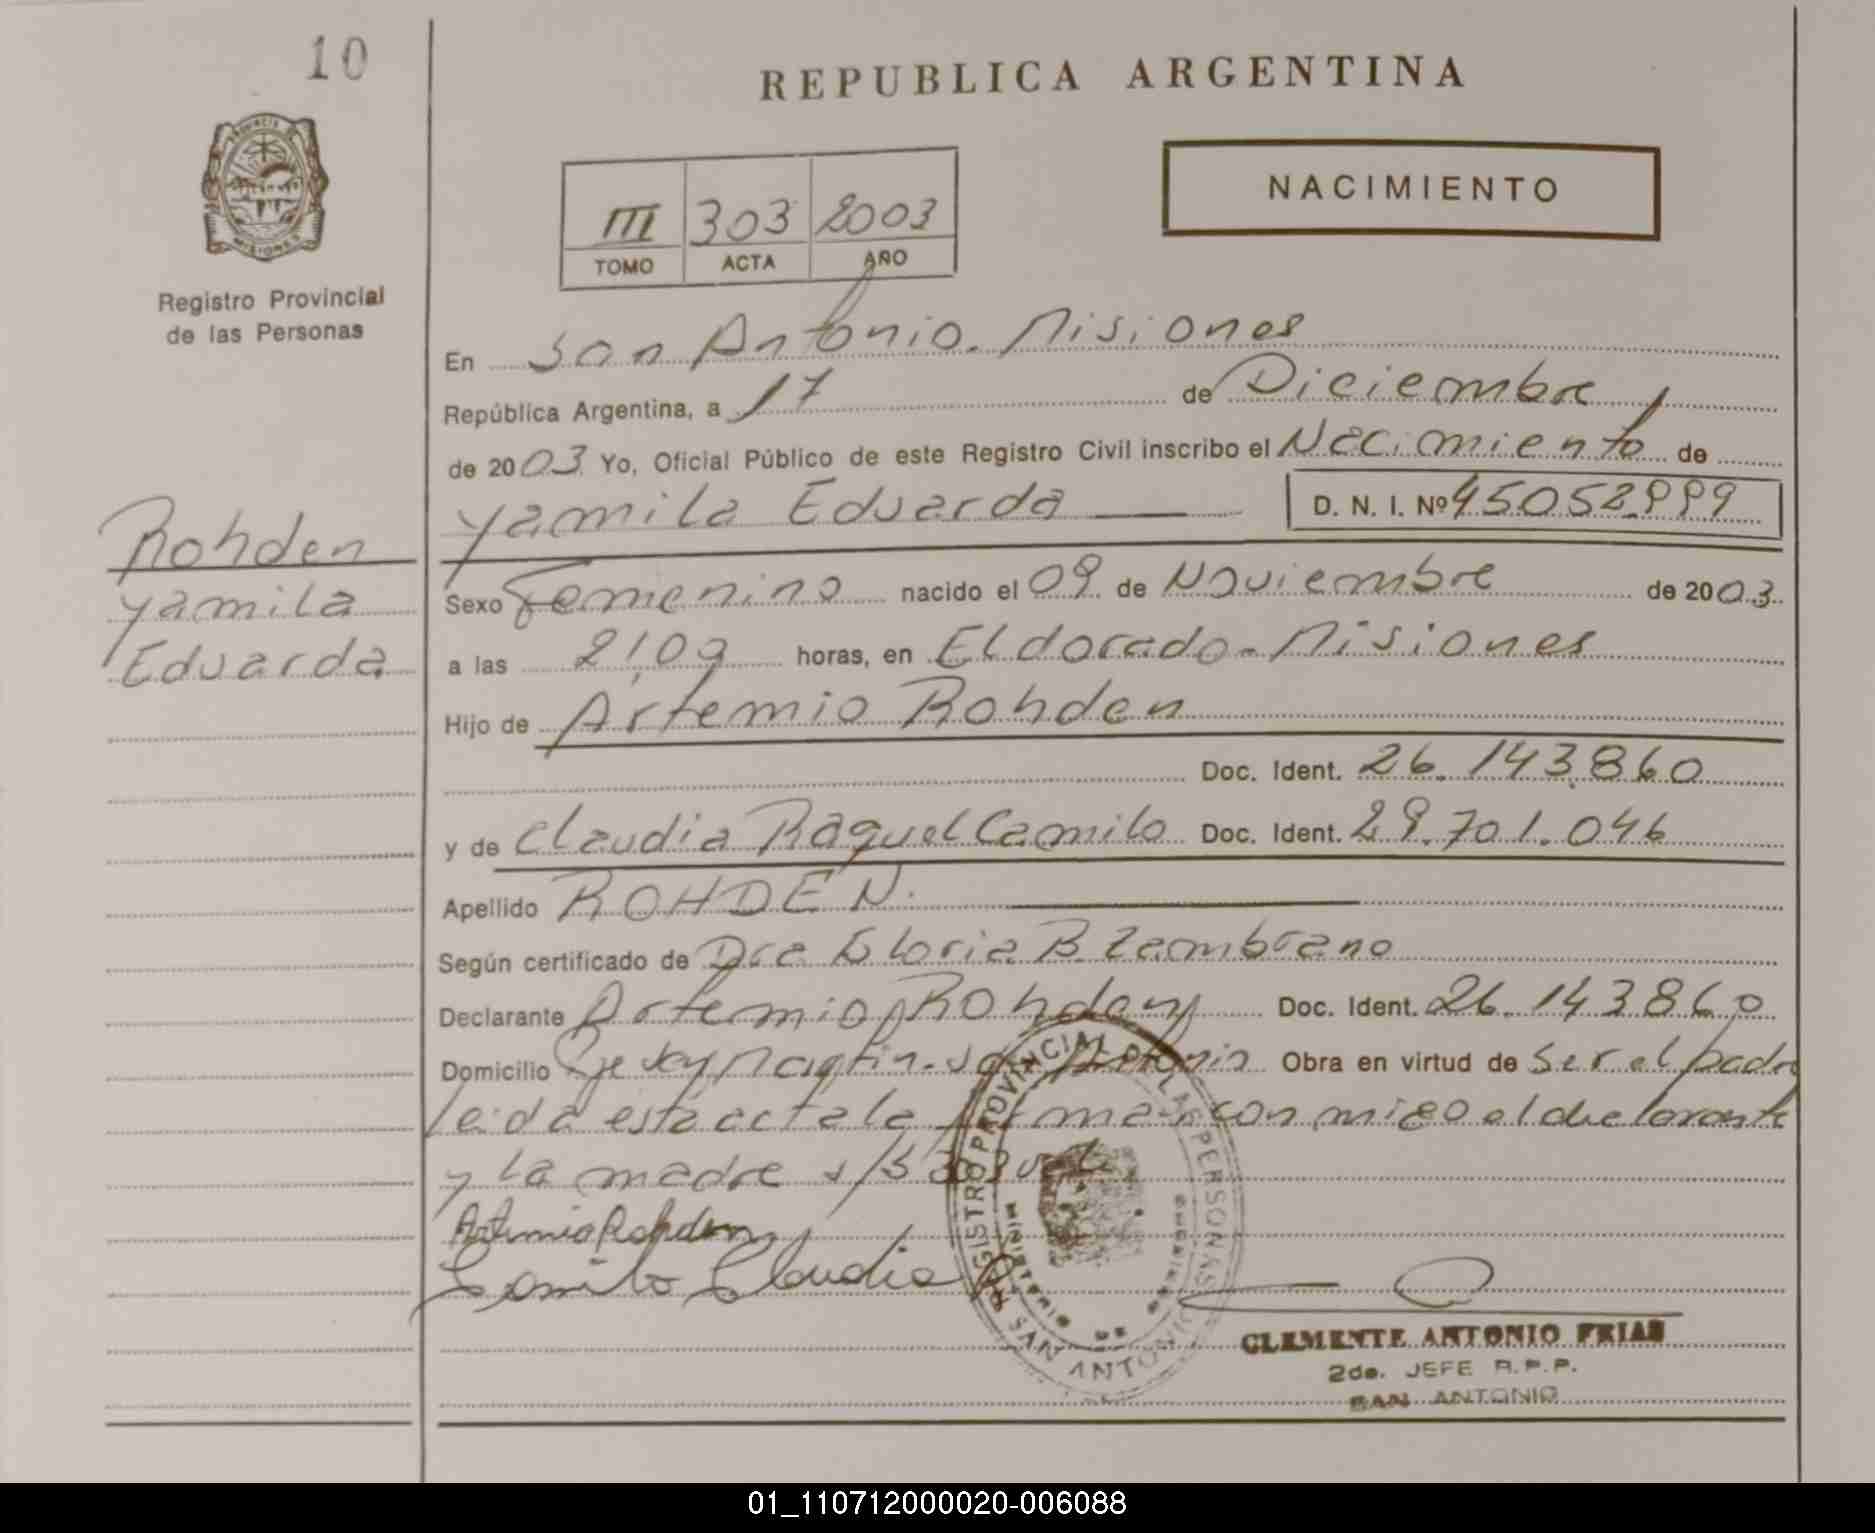 10
PROVINCIA DE
MISIONES
Registro Provincial
de las Personas
Rohden
Yamila
Eduarda
REPUBLICA ARGENTINA
NACIMIENTO
III 303 2003
TOMO ACTA AÑO
En San Antonio. Misiones
República Argentina, a 17 de Diciembre
de 2003 Yo, Oficial Público de este Registro Civil inscribo el Nacimiento de
Yamila Eduarda D. N. I. Nº 45052999
Sexo Femenino nacido el 09 de Noviembre de 2003
a las horas, en Eldorado - Misiones
Hijo de Artemio Rohden
Doc. Ident. 26.143.860
y de Claudia Raquel Camilo Doc. Ident. 29.701.046
Apellido ROHDEN.
Según certificado de Dra Gloria B. Zambrano
Declarante Artemio Rohden Doc. Ident. 26.143860
Domicilio San Antonio Obra en virtud de Ser el padre
leida esta acta la firman conmigo el declarante
y la madre
Artemio Rohden
Camilo Claudia R
REGISTRO PROVINCIAL DE LAS PERSONAS
MINISTERIO DE GOBIERNO
SAN ANTONIO
CLEMENTE ANTONIO FRIAS
2do. JEFE R.P.P.
SAN ANTONIO
01_110712000020-006088